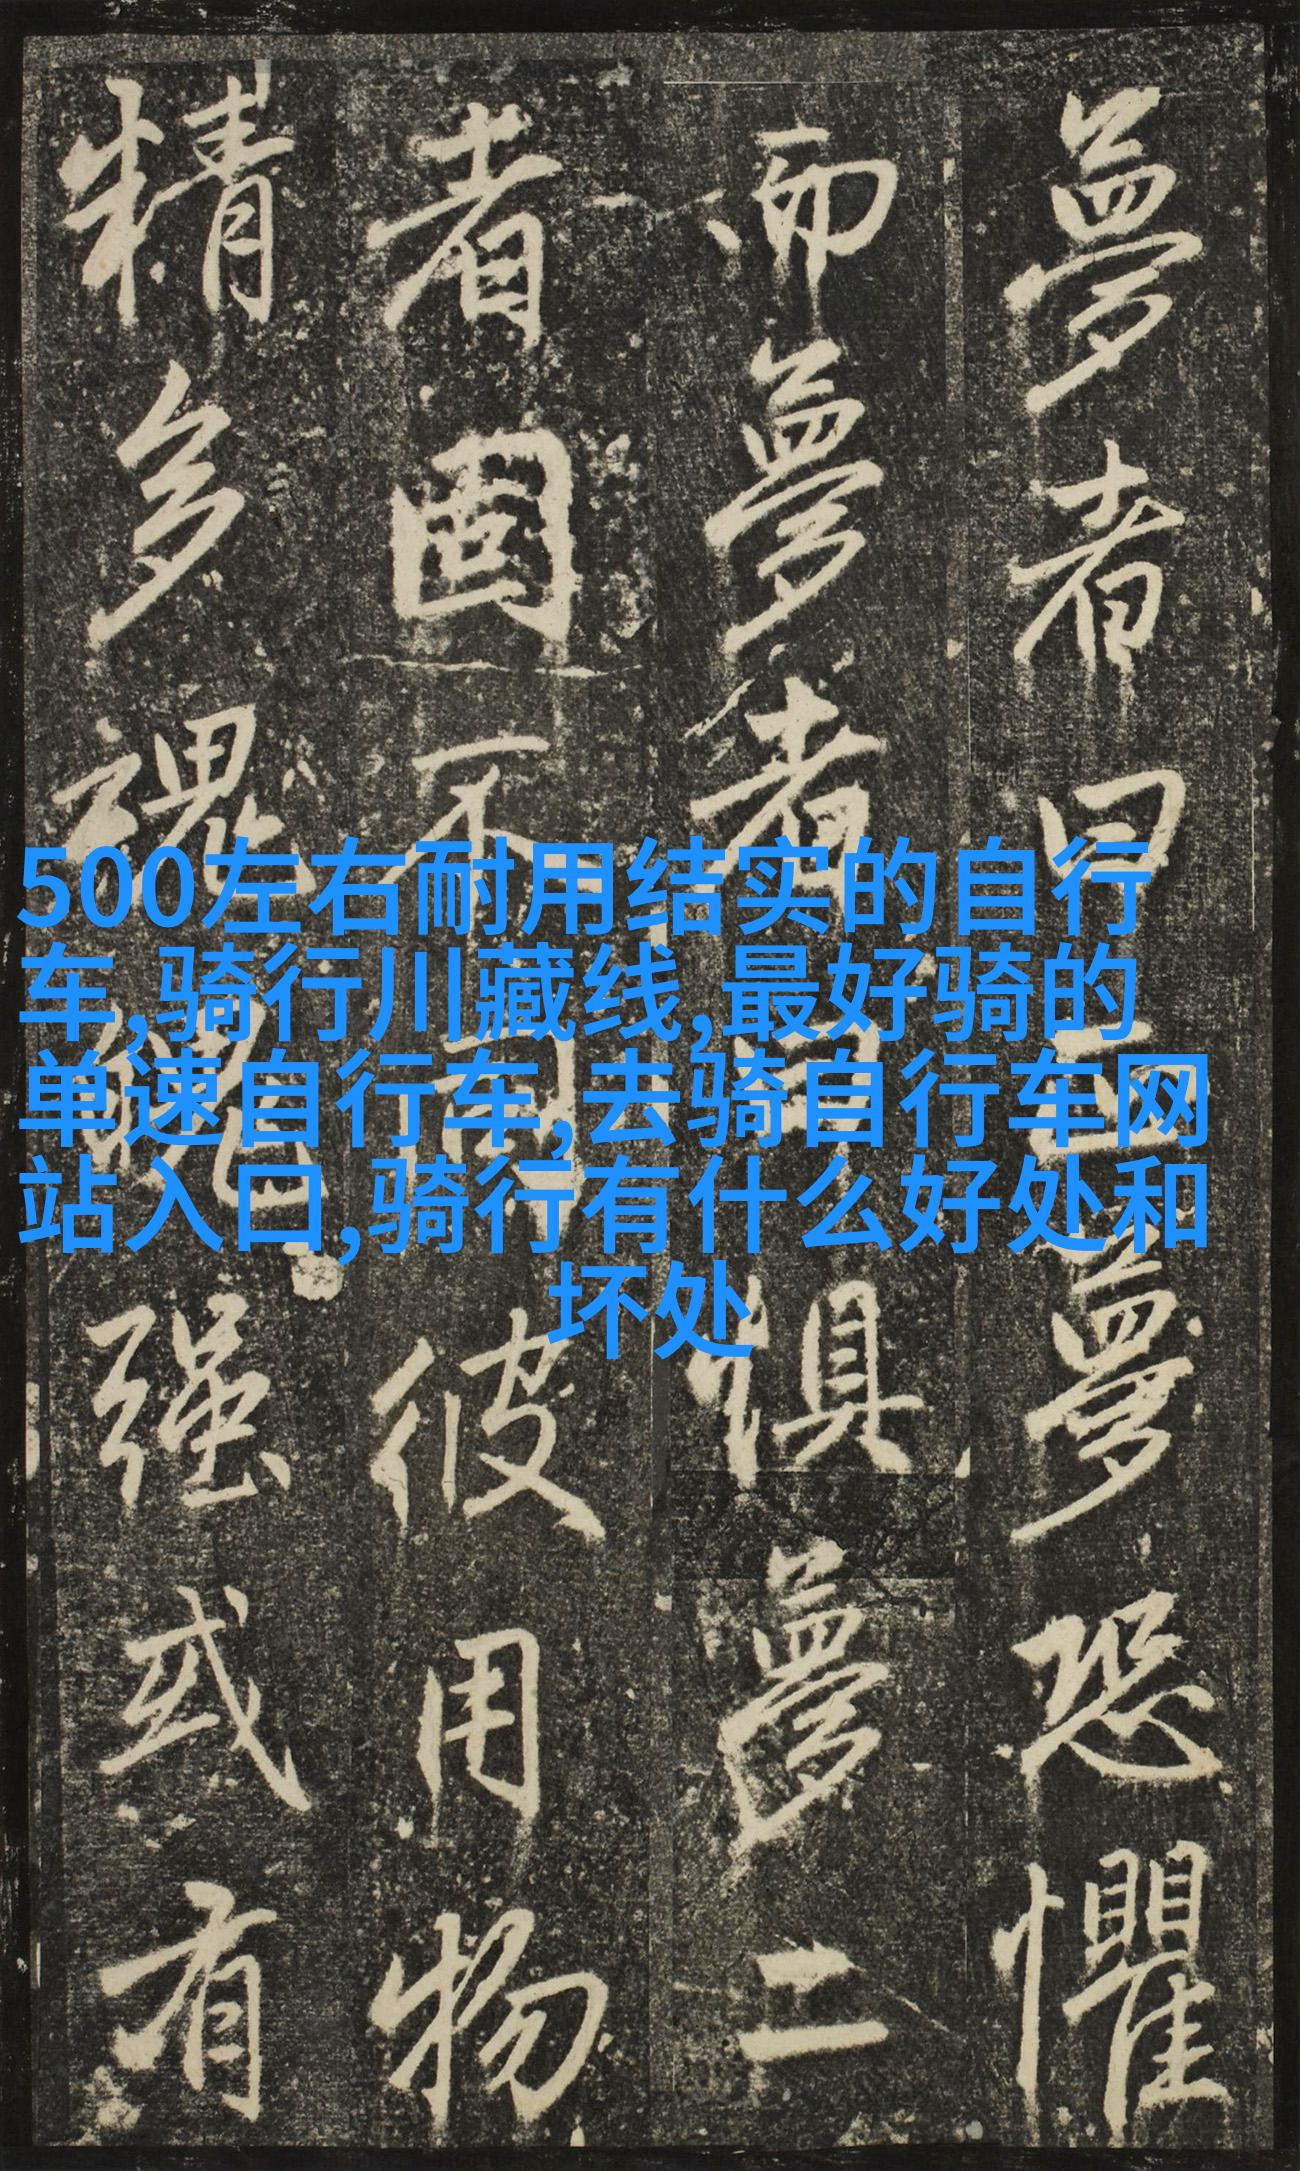 夢者曰夢恐懼
而夢者曰懼夢二
者固不同彼用物
精多魂魄强或有
500左右耐用结实的自行
车,骑行川藏线,最好骑的
单速自行车,去骑自行车网
站入口,骑行有什么好处和
坏处